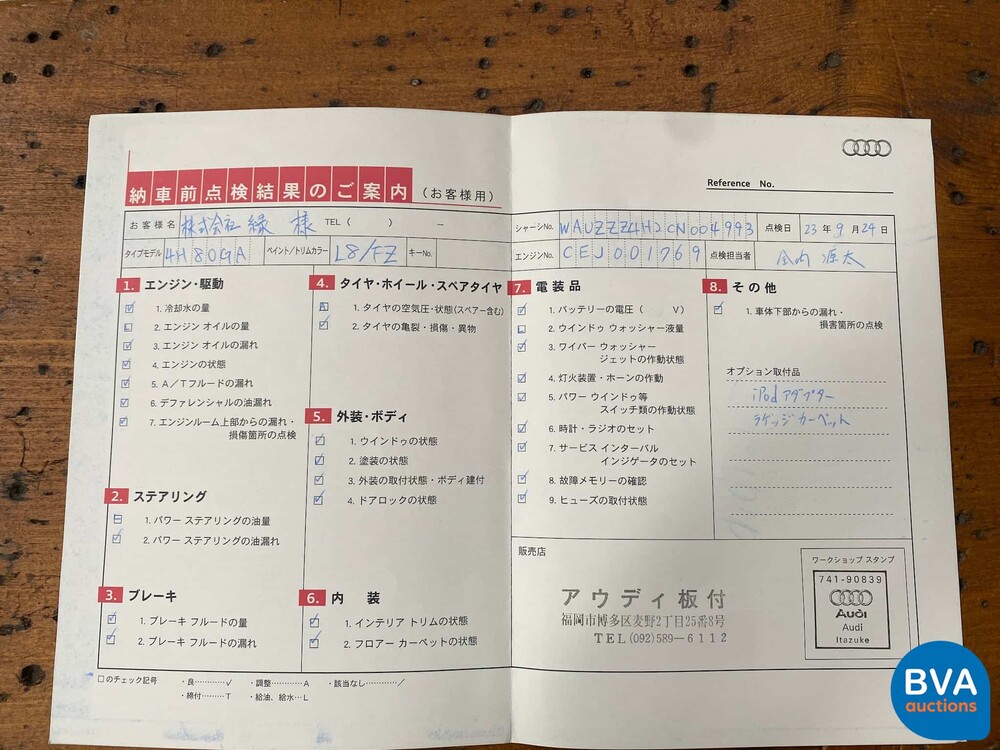 納車前点検結果のご案内 (お客様用)
お客様名 株式会社 緑 様 TEL ( ) –
タイプモデル 4H80GA ペイント/トリムカラー L8/FZ キーNo.
1. エンジン・駆動
1. 冷却水の量
2. エンジン オイルの量
3. エンジン オイルの漏れ
4. エンジンの状態
5. A/Tフルードの漏れ
6. デファレンシャルの油漏れ
7. エンジンルーム上部からの漏れ・
損傷箇所の点検
2. ステアリング
1. パワー ステアリングの油量
2. パワー ステアリングの油漏れ
3. ブレーキ
1. ブレーキ フルードの量
2. ブレーキ フルードの漏れ
4. タイヤ・ホイール・スペアタイヤ
1. タイヤの空気圧・状態(スペアー含む)
2. タイヤの亀裂・損傷・異物
5. 外装・ボディ
1. ウインドゥの状態
2. 塗装の状態
3. 外装の取付状態・ボディ建付
4. ドアロックの状態
6. 内 装
1. インテリア トリムの状態
2. フロアー カーペットの状態
□のチェック記号 ・良………√ ・調整…………A ・該当なし…………/
・締付………T ・給油、給水…L
Reference No.
シャーシNo. WAUZZZ4HDCN004993 点検日 23年9月24日
エンジンNo. CEJ001769 点検担当者
7. 電装品
1. バッテリーの電圧 ( V)
2. ウインドゥ ウォッシャー液量
3. ワイパー ウォッシャー
ジェットの作動状態
4. 灯火装置・ホーンの作動
5. パワー ウインドゥ等
スイッチ類の作動状態
6. 時計・ラジオのセット
7. サービス インターバル
インジゲータのセット
8. 故障メモリーの確認
9. ヒューズの取付状態
8. その他
1. 車体下部からの漏れ・
損害箇所の点検
オプション取付品
iPodアダプター
ラゲッジカーペット
販売店
アウディ板付
福岡市博多区麦野2丁目25番8号
TEL (092) 589-6112
ワークショップ スタンプ
741-90839
Audi
Audi
Itazuke
BVA
auctions